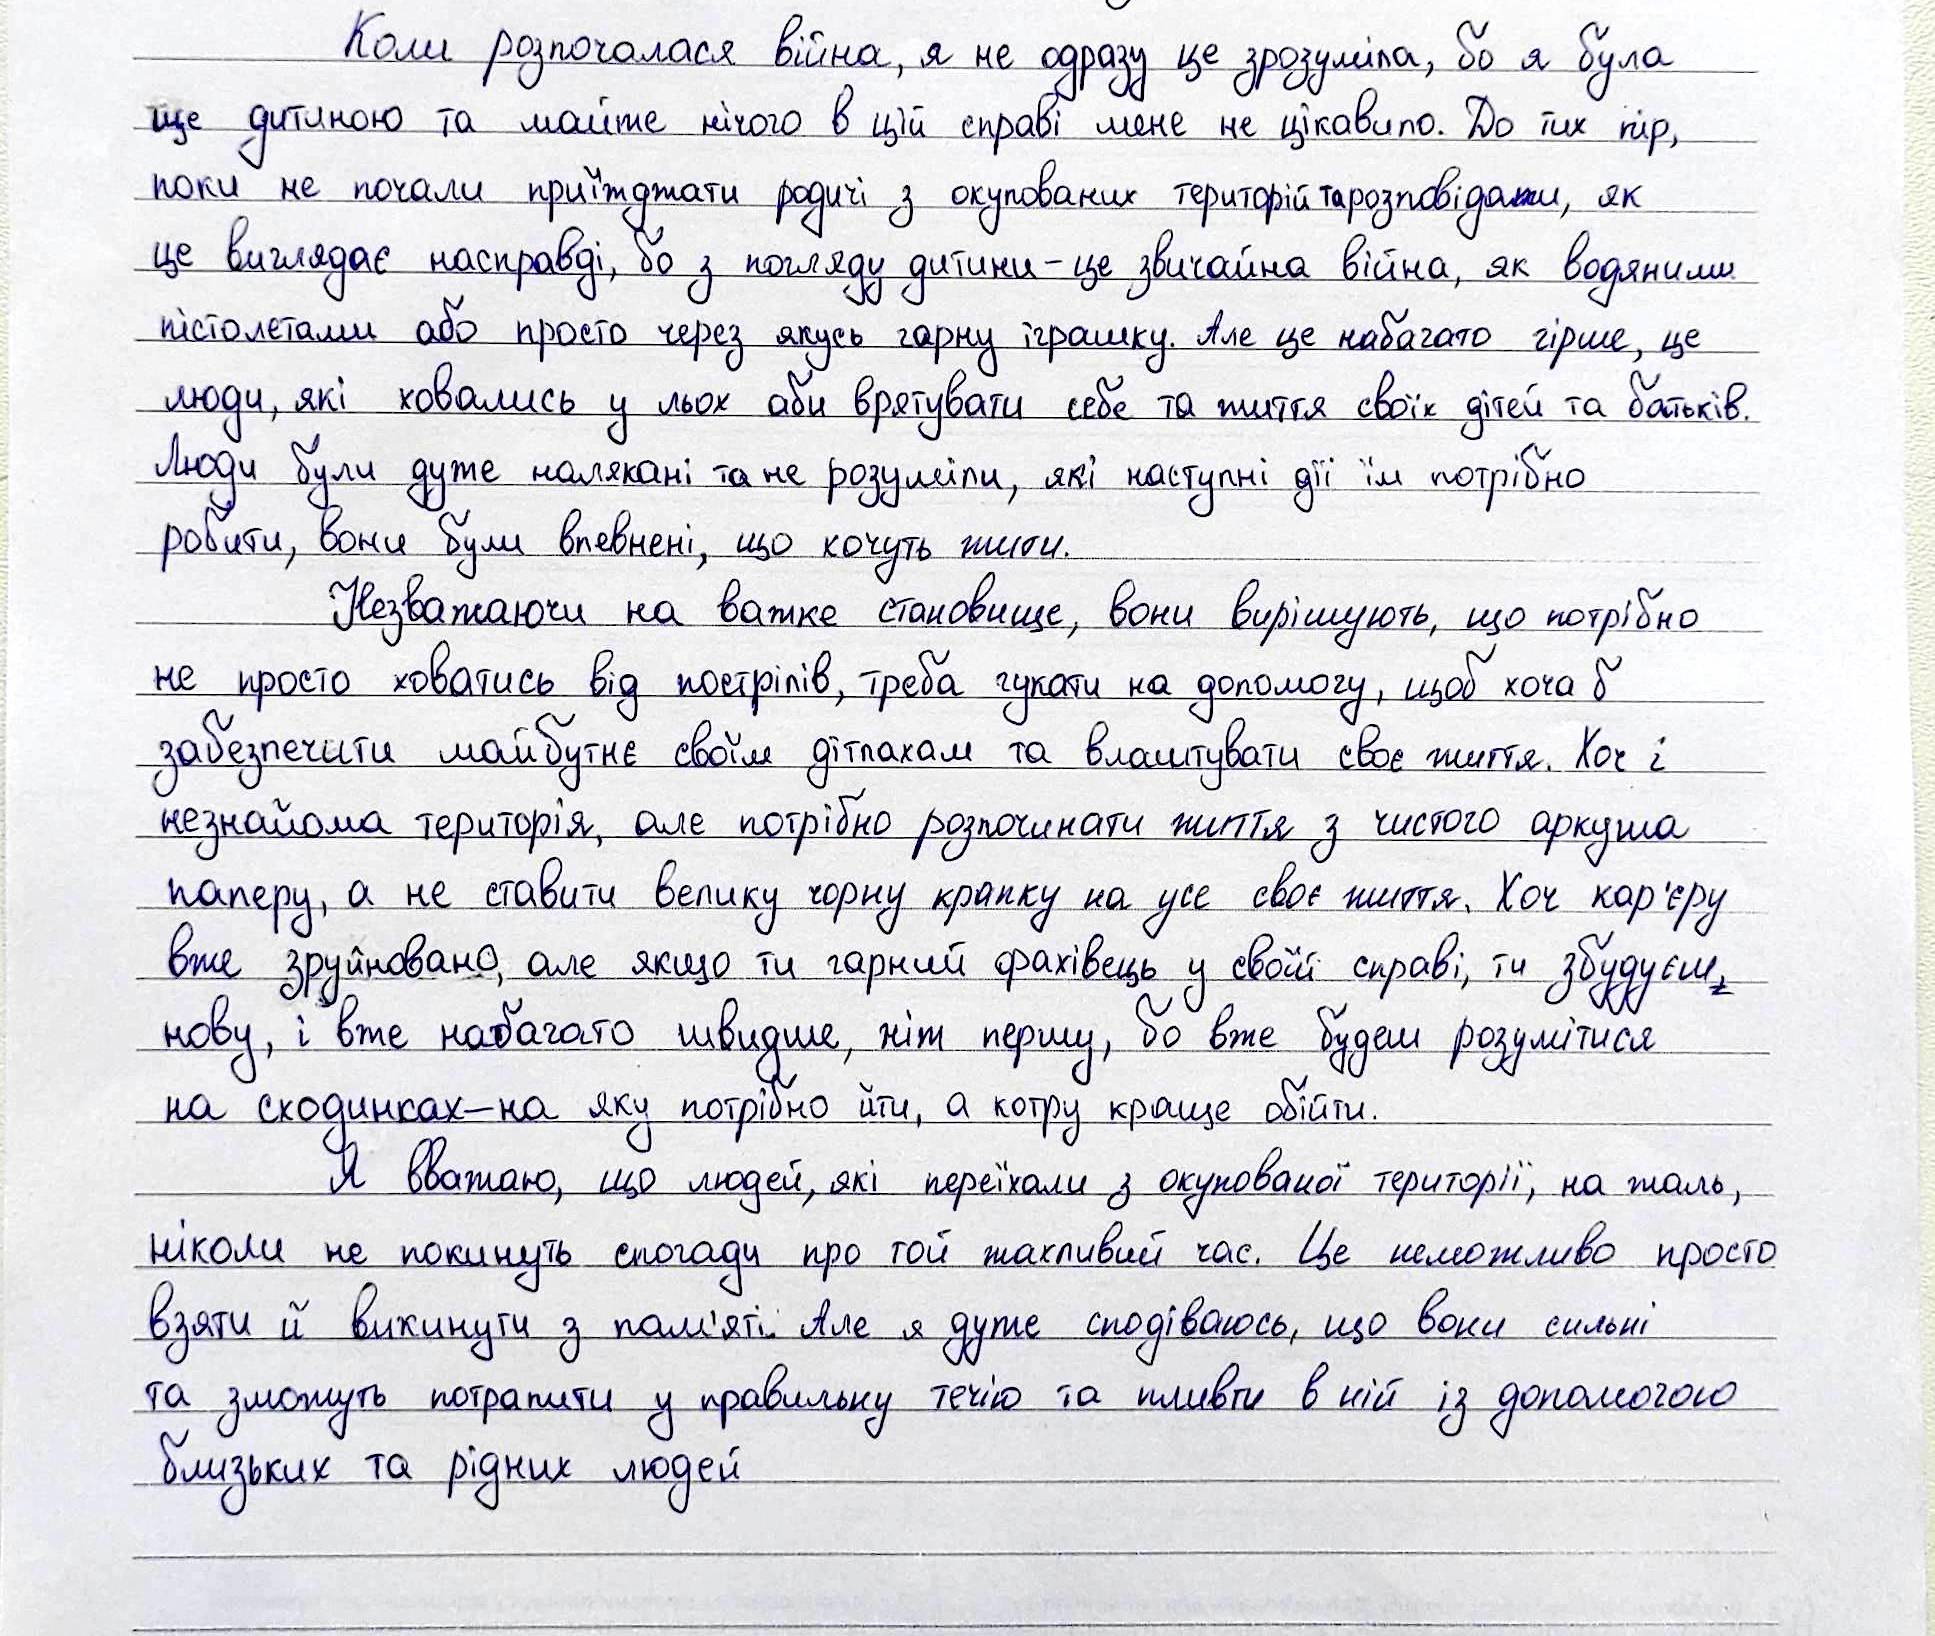 Коли розпочалася війна, я не одразу це зрозуміла, бо я була
ще дитиною та майже нічого в цій справі мене не цікавило. До тих пір,
поки не почали приїжджати родичі з окупованих територій та розповідати, як
це виглядає насправді, бо з погляду дитини - це звичайна війна, як водяними
пістолетами або просто через якусь гарну іграшку. Але це набагато гірше, це
люди, які ховались у льох аби врятувати себе та життя своїх дітей та батьків.
Люди були дуже налякані та не розуміли, які наступні дії їм потрібно
робити, вони були впевнені, що хочуть жити.
Незважаючи на важке становище, вони вирішують, що потрібно
не просто ховатись від пострілів, треба гукати на допомогу, щоб хоча б
забезпечити майбутнє своїм дітлахам та влаштувати своє життя. Хоч і
незнайома територія, але потрібно розпочинати життя з чистого аркуша
паперу, а не ставити велику чорну крапку на усе своє життя. Хоч кар'єру
вже зруйновано, але якщо ти гарний фахівець у своїй справі, ти збудуєш
нову, і вже набагато швидше, ніж першу, бо вже будеш розумітися
на сходинках – на яку потрібно йти, а котру краще обійти.
Я вважаю, що людей, які переїхали з окупованої території, на жаль,
ніколи не покинуть спогади про той жахливий час. Це неможливо просто
взяти й викинути з пам'яті. Але я дуже сподіваюсь, що вони сильні
та зможуть потрапити у правильну течію та пливти в ній із допомогою
близьких та рідних людей